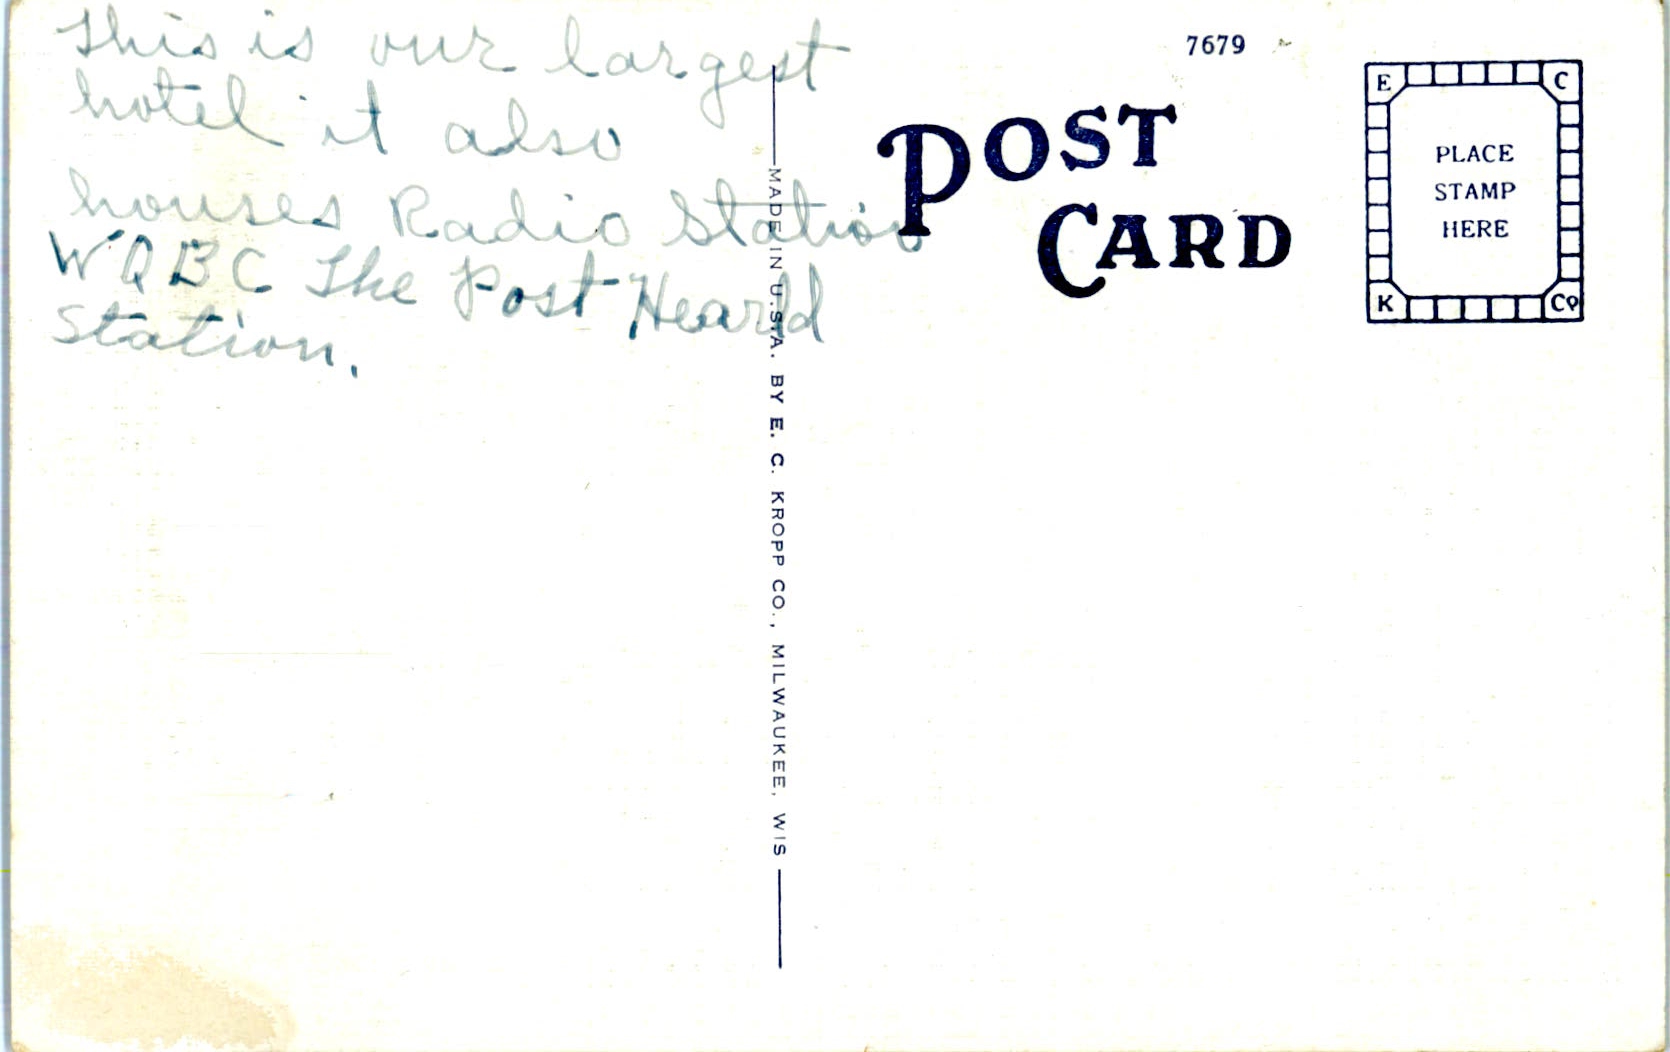 This is our largest
hotel it also
houses Radio Station
WQBC The Post Hearld
Station.
7679
POST
CARD
E C
PLACE
STAMP
HERE
K Co
MADE IN U.S.A. BY E. C. KROPP CO., MILWAUKEE, WIS